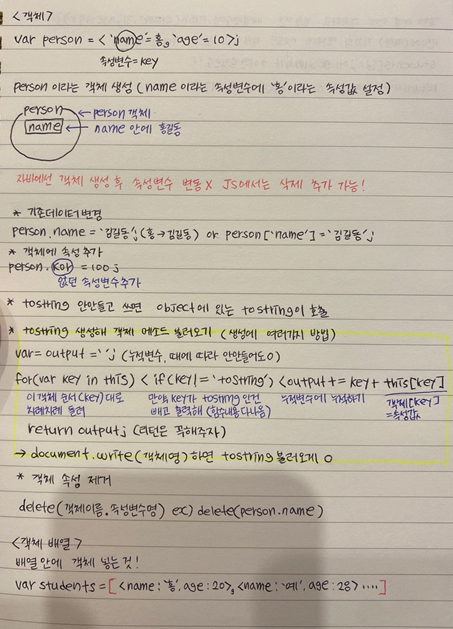 <객체>
var person = < 'name'= 홍, 'age' = 10>;
속성변수 = key
person 이라는 객체 생성 (name 이라는 속성변수에 '홍'이라는 속성값 설정)
person ← person 객체
name ← name 안에 홍길동
자바에선 객체 생성 후 속성변수 변동 X JS에서는 삭제 추가 가능!
* 기존데이터 변경
person.name = '김길동'; (홍→김길동) or person['name'] = '김길동';
* 객체에 속성 추가
person.kor = 100;
없던 속성변수추가
* tostring 안만들고 쓰면 object에 있는 tostring이 호출
* tostring 생성해 객체 메소드 불러오기 (생성에 여러가지 방법)
var= output = ' '; (누적변수, 때에 따라 안만들어도 O)
for(var key in this) < if (key != 'toString') < output += key + this[key]
이 객체 순서(key) 대로 만약 key가 tostring 인건 누적변수에 누적하기 객체[key]
차례차례 돌려 빼고 출력해 (함수내용 다나옴) =속성값
return output; (리턴은 꼭해주자)
→ document.write(객체명) 하면 tostring 불러오게 O
* 객체 속성 제거
delete(객체이름.속성변수명) ex) delete(person.name)
<객체 배열>
배열 안에 객체 넣는 것!
var students = [ <name: '홍', age: 20>, <name: '예', age: 28> .... ]